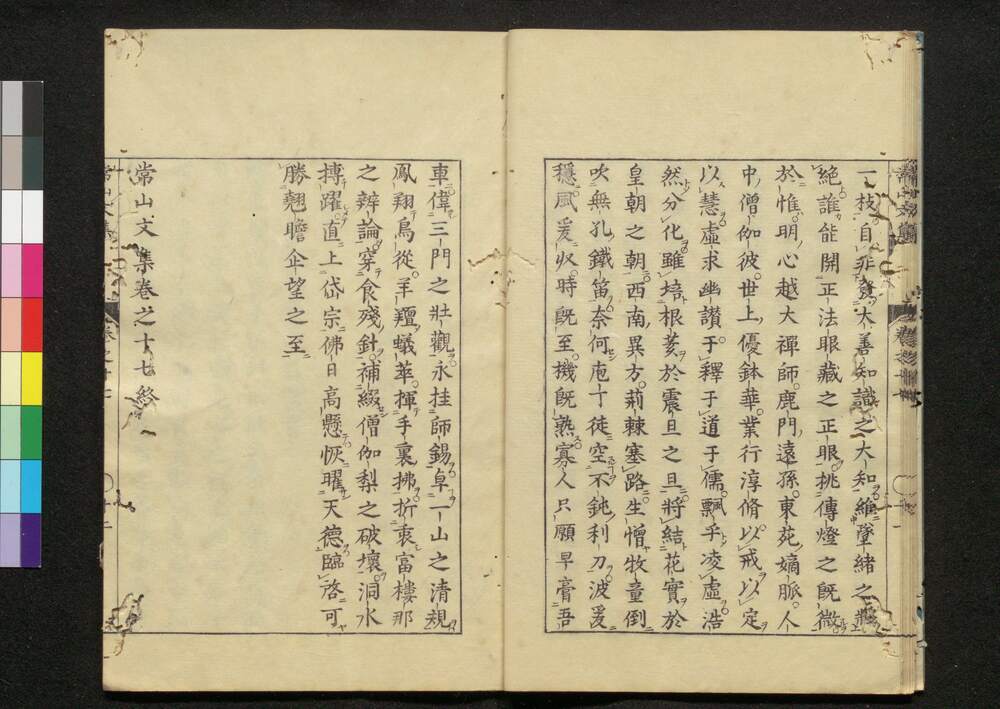 一枝自非發大善知識之大知維肇緒之
絶誰能開正法眼藏之正眼挑傳燈之既微
於惟明心越大禪師鹿門遠孫東苑嫡脈人
中僧伽彼世上優鉢華業行淳脩以戒以定
以慧虛求幽讃于釋于道于儒飄乎凌虛浩
然分化雖培根荄於震旦之旦將結花實於
皇朝之朝西南異方荊棘塞路生憎牧童倒
吹無孔鐵笛奈何庖丁徒空不鈍利刀波爰
穩風爰收時既至機既熟寡人只願早膏吾
車偉三門之壯觀永挂師錫卓一山之清規
鳳翔鳥從羊羶蟻萃揮手裏拂折衷富樓那
之辨論穿食殘針補綴僧伽梨之破壞洞水
摶躍直上岱宗佛日高懸恢曜天德臨啓可
勝翹瞻伞望之至
常山文集卷之十七終